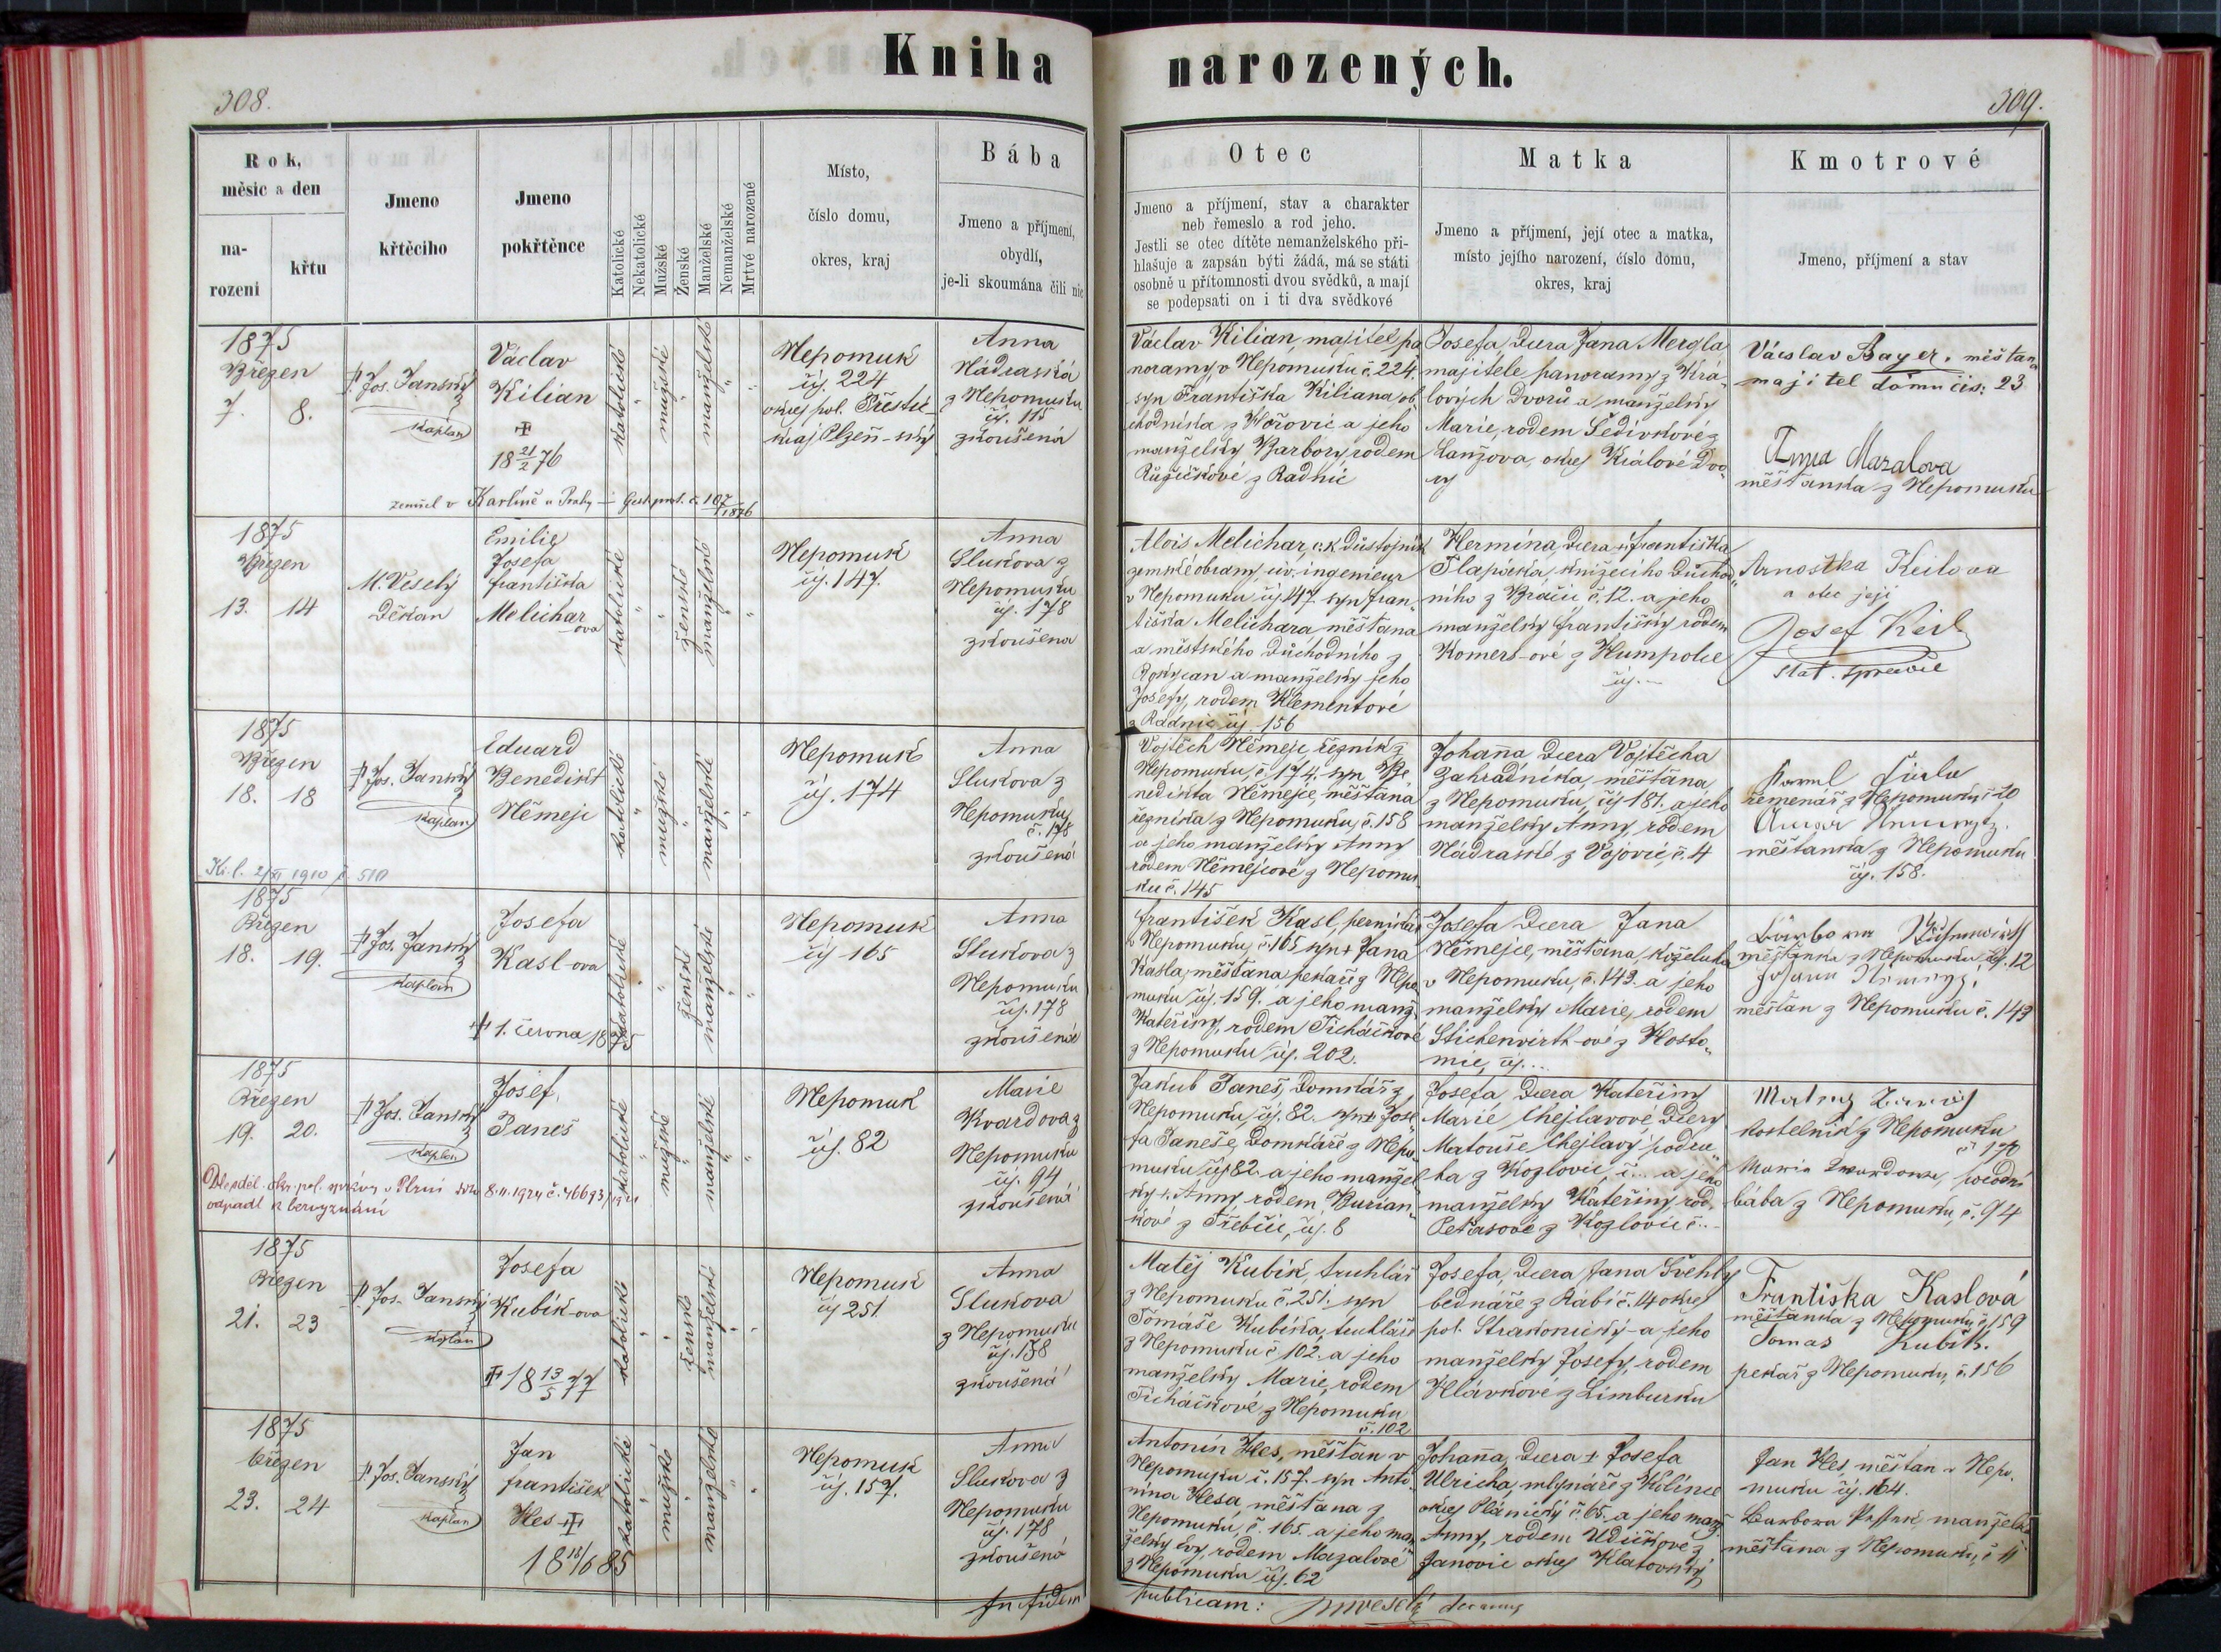 Kniha narozených.
308.
309.
Rok,
měsíc a den
na-
rození
křtu
Jmeno
křtěcího
Jmeno
pokřtěnce
Katolické
Nekatolické
Mužské
Ženské
Manželské
Nemanželské
Mrtvé narozené
Místo,
číslo domu,
okres, kraj
Bába
Jmeno a příjmení,
obydlí,
je-li skoumána čili nic
Otec
Jmeno a příjmení, stav a charakter
neb řemeslo a rod jeho.
Jestli se otec dítěte nemanželského při-
hlašuje a zapsán býti žádá, má se státi
osobně u přítomnosti dvou svědků, a mají
se podepsati on i ti dva svědkové
Matka
Jmeno a příjmení, její otec a matka,
místo jejího narození, číslo domu,
okres, kraj
Kmotrové
Jmeno, příjmení a stav
1875
Březen
7. 8.
P. Jos. Janský
kaplan
Václav
Kilian
✠
18 21/2 76
katolické
mužské
manželské
Nepomuk
čís. 224
okres pol. Přeštic-
kraj Plzeň-ský
Anna
Nádraská
z Nepomuku
čís. 115
zkoušená
zemřel v Karlíně u Prahy – Gest. prot. č. 107/1876
Václav Kilian, majitel pa
noramy, v Nepomuku č. 224.
syn Františka Kiliana ob
chodníka z Hořovic a jeho
manželky Barbory, rodem
Růžičkové z Radnic
Josefa, dcera Jana Mergla
majitele panoramy z Krá-
lových Dvorů a manželky
Marie, rodem Šedivkové z
Lanžova, okres Králové Dvo-
ry
Václav Bayer, měštan
majitel domu čís: 23
Anna Mazalova
měštanka z Nepomuku
1875
Březen
13. 14
M. Veselý
Děkan
Emilie
Josefa
Františka
Melichar
ova
katolické
ženské
manželské
Nepomuk
čís. 147.
Anna
Slukova z
Nepomuku
čís. 178
zkoušena
Alois Melichar, c. k. důstojník
zemské obrany, civ. ingenieur
v Nepomuku čís. 147. syn Fran-
tiška Melichara měštana
a městského důchodního z
Rokycan a manželky jeho
Josefy, rodem Klementové
z Radnic čís. 156
Hermína, dcera † Františka
Šlapáka, knížecího důchod-
ního z č. 12. a jeho
manželky Františky rodem
Komers-ové z Humpolce
čís. –
Arnoštka Keilova
a otec její
Josef Keil
stat. správce
1875
Březen
18. 18
P. Jos. Janský
kaplan
Eduard
Benedikt
Němejc
katolické
mužské
manželské
Nepomuk
čís. 174
Anna
Slukova z
Nepomuku
č. 178
zkoušená
1910 č. 510
Vojtěch Němejc, řezník z
Nepomuku, č. 174. syn Be
nedikta Němejce, měštana
řezníka z Nepomuku, č. 158
a jeho manželky Anny
rodem Němejcové z Nepomu-
ku č. 145
Johana, dcera Vojtěcha
Zahradníka, měštana
z Nepomuku, čís 181. a jeho
manželky Anny, rodem
Nádraské z Vojovic, č. 4
řemenář z Nepomuku č 20
měštanka z Nepomuku
čís. 158.
1875
Březen
18. 19.
P. Jos. Janský
kaplan
Josefa
Kasl-ova
✠ 1. června 1875
katolické
ženské
manželské
Nepomuk
čís 165
Anna
Slukova z
Nepomuku
čís. 178
zkoušená
František Kasl, perníkář
v Nepomuku, č. 165 syn † Jana
Kasla, měštana, pekaře z Nepo
muku čís. 159. a jeho manž.
Kateřiny, rodem Ticháčkové
z Nepomuku čís. 202.
Josefa dcera Jana
Němejce, měštana, koželuha
v Nepomuku, č. 143. a jeho
manželky Marie, rodem
Stichenwirth-ové z Hosto-
mic, čís. ...
měštanka z Nepomuku čís. 12
měštan z Nepomuku č. 143
1875
Březen
19. 20.
P. Jos. Janský
kaplan
Josef,
Paneš
katolické
mužské
manželské
Nepomuk
čís. 82
Marie
Kvardova z
Nepomuku
čís. 94
zkoušená
Dle sděl. okr. pol. správy v Plzni 8.II.1924 č. 46693/1921
odpadl k bezvyznání
Jakub Paneš, domkář z
Nepomuku, čís. 82. syn † Jose
fa Paneše, domkáře z Nepo-
muku čís 82. a jeho manžel
ky †. Anny, rodem Burian-
kové z Třebčic, čís. 8
Josefa dcera Kateřiny
Marie Chejlavové, dcery
Matouše Chejlavy, podru-
ha z Kozlovic, č... a jeho
manželky Kateřiny, rod.
Petrasové z Kozlovic č...
kostelník z Nepomuku
č 170
Marie Kwardowa, porodní
bába z Nepomuku, č. 94
1875
Březen
21. 23
P. Jos. Janský
kaplan
Josefa
Kubík-ova
✠ 18 13/5 77
katolické
ženské
manželské
Nepomuk
čís 251
Anna
Slukova
z Nepomuku
čís. 178
zkoušená
Matěj Kubík, truhlář
z Nepomuku č. 251. syn
Tomáše Kubíka, truhláře
z Nepomuku č 102. a jeho
manželky Marie, rodem
Ticháčkové z Nepomuku
č. 102
Josefa, dcera Jana Švehly
bednáře z Rábí č. 14 okres
pol. Strakonický a jeho
manželky Josefy, rodem
Hlávkové z Limburku
Františka Kaslová
měštanka z Nepomuku, č. 159
Tomas Kubík.
pekař z Nepomuku, č. 156
1875
Březen
23. 24
P. Jos. Janský
kaplan
Jan
František
Hes ✠
18 18/6 85
katolické
mužské
manželské
Nepomuk
čís. 157.
Anna
Slukova z
Nepomuku
čís. 178
zkoušená
Antonín Hes, měštan v
Nepomuku č. 157. syn Anto-
nína Hesa, měštana z
Nepomuku, č. 165. a jeho man
želky Evy, rodem Mazalové
z Nepomuku čís. 62
Johana, dcera † Josefa
Ulricha, mlynáře z Kolince
okres Plánický č. 65. a jeho manž
Anny, rodem Udičkové z
Janovic okres Klatovský
Jan Hes, měštan v Nepo-
muku čís. 164.
Barbora manželka
měštana z Nepomuku, č 11
In fidem
publicam: MVeselý decanus